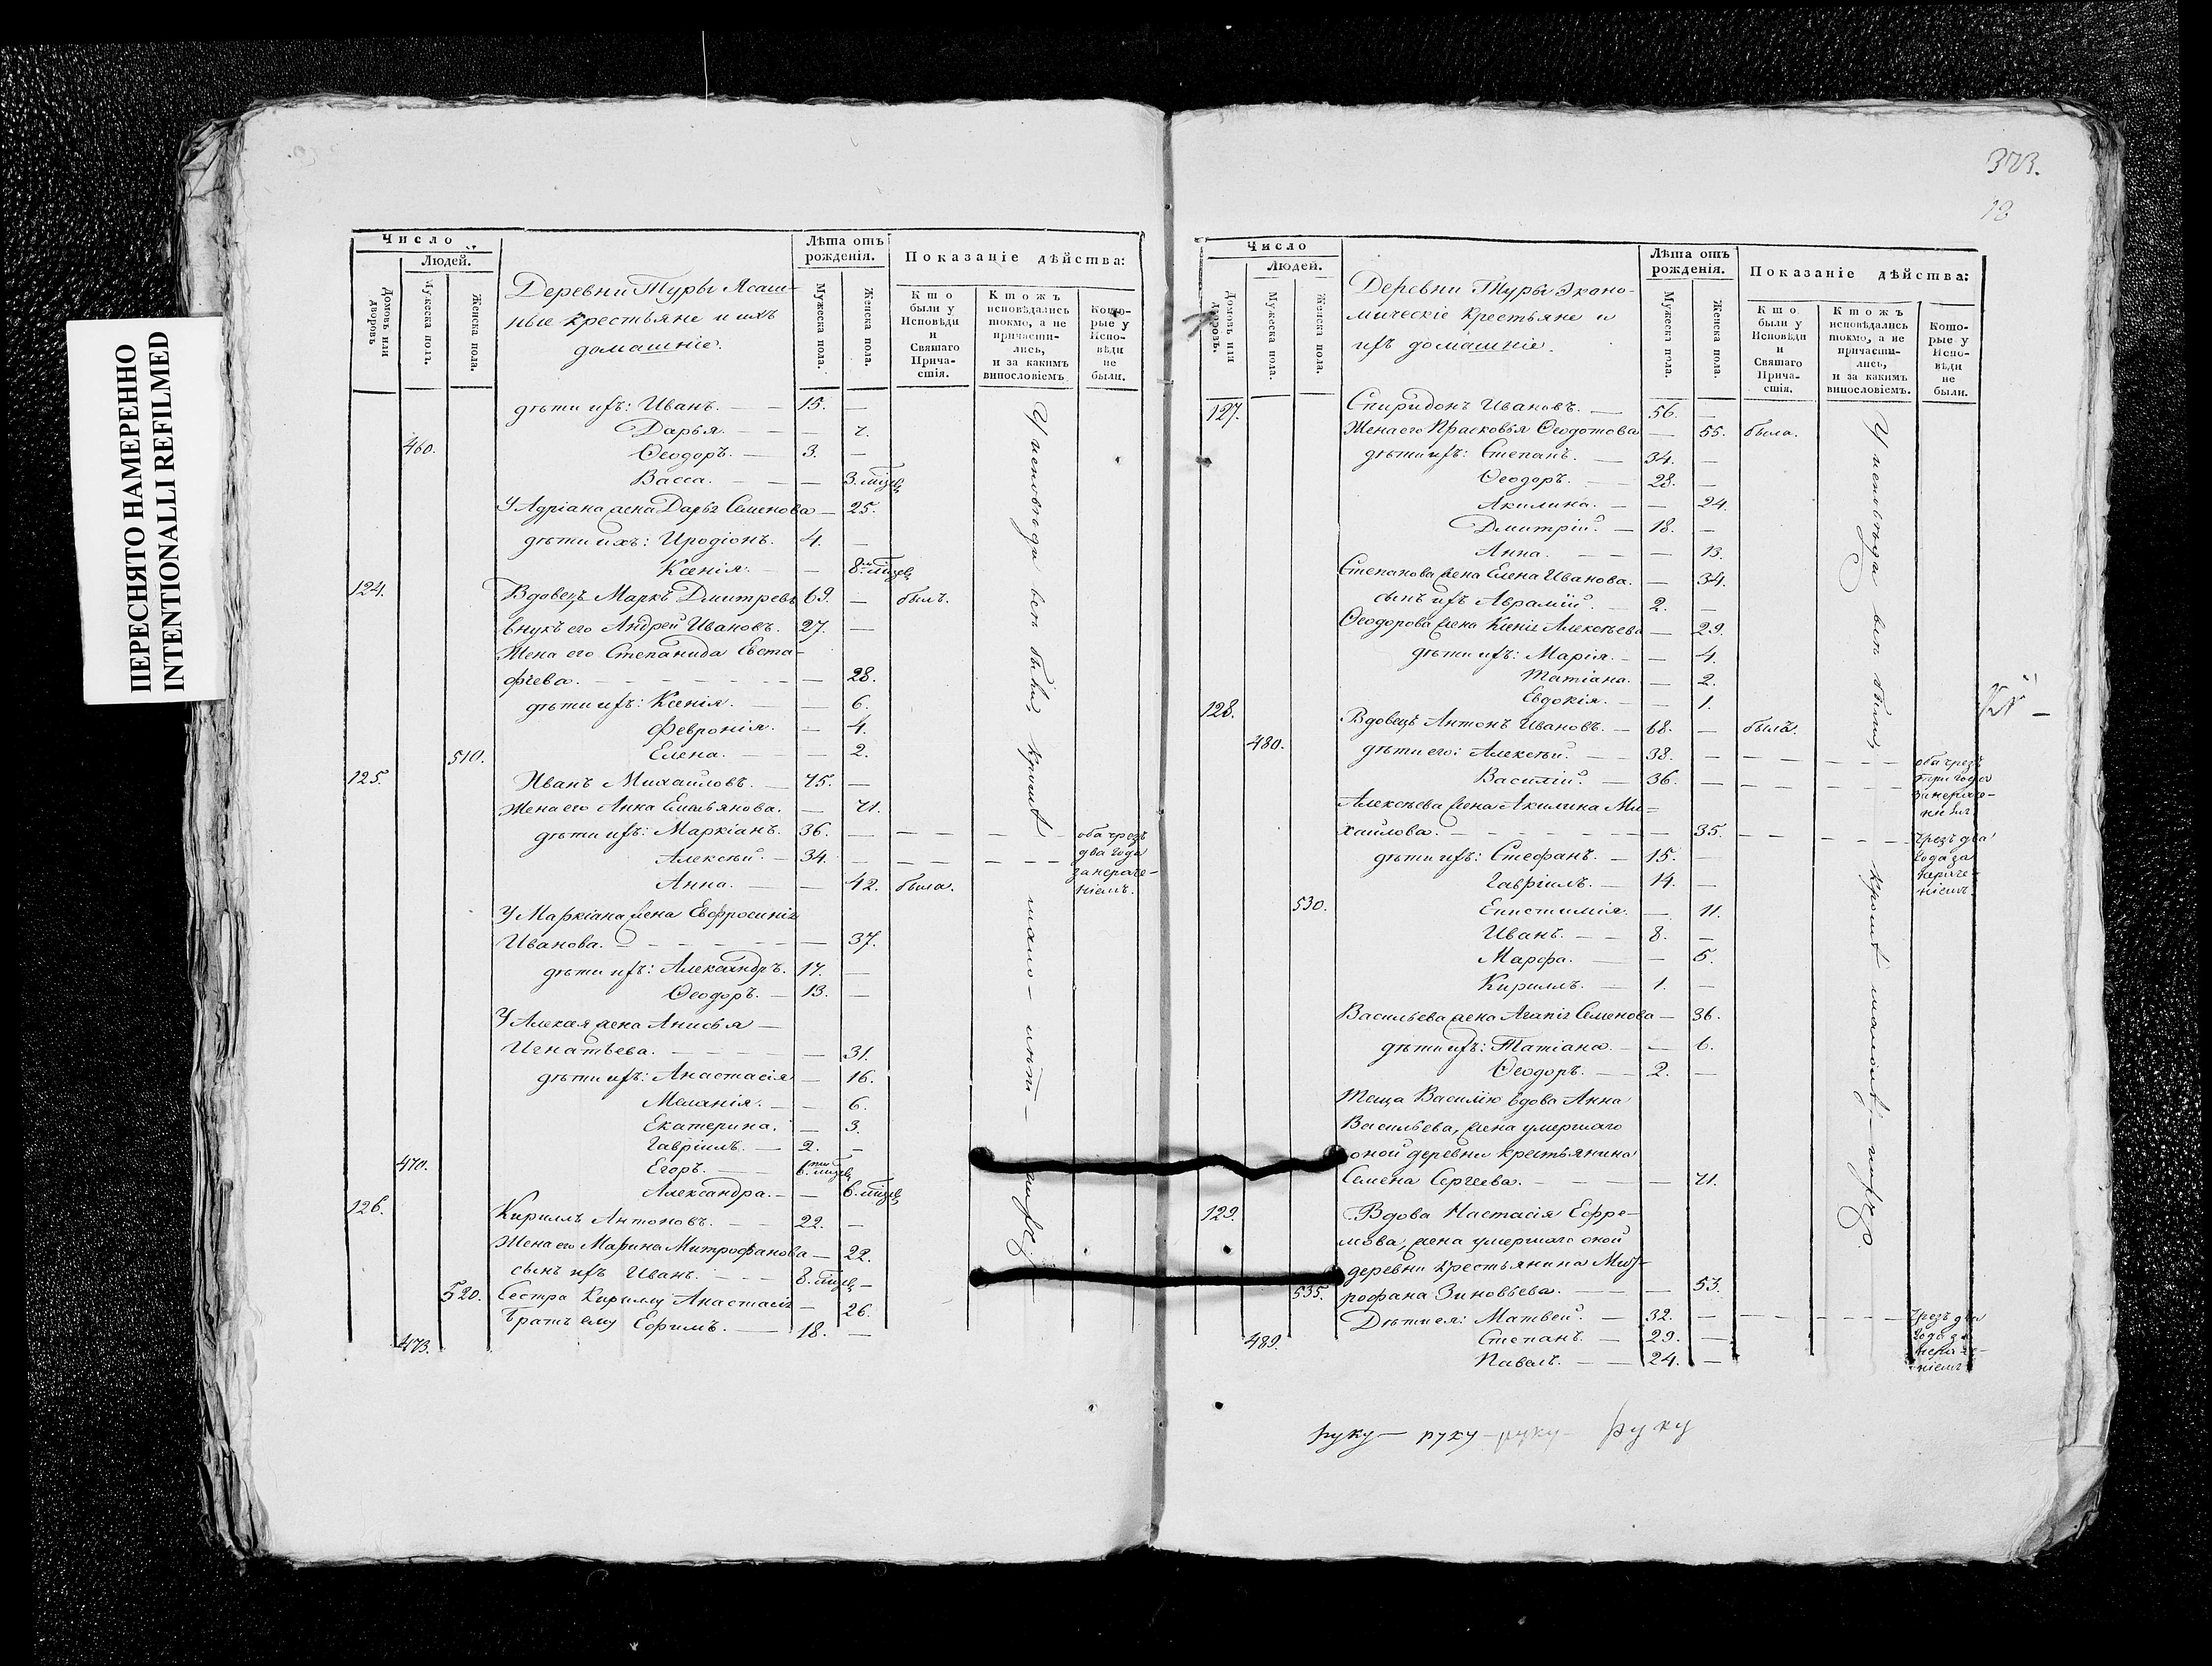 ПЕРЕСНЯТО НАМЕРЕННО
INTENTIONALLI REFILMED
Число
Людей.
Домовъ или дворовъ
Мужеска полъ.
Женска пола.
Деревни Туры Ясаш-
ные крестьяне и ихъ
домашніе.
Лѣта отъ рожденія.
Мужеска пола.
Женска пола.
Показаніе дѣйства:
Кто были у Исповѣди и Святаго Прича-стія.
Ктожъ исповѣдались токмо, а не причасти-лись, и за какимъ винословіемъ
Кото-рые у Испо-вѣди не были.
дѣти ихъ: Иванъ. — 15. —
Дарья. — — 7.
460. Ѳеодоръ. — 3. —
Васса. — — 3. мѣсяц
У Адріана жена Дарья Семенова — 25.
дѣти ихъ: Иродіонъ. 4. —
Ксенія. — 8. мѣсяц
124. Вдовецъ Маркъ Дмитревъ 69. — былъ.
внукъ его Андрей Ивановъ. 27. —
Жена его Степанида Евста-
фіева. — — 28.
дѣти ихъ: Ксенія. — — 6.
Февронія. — 4.
510. Елена. — — 2.
125. Иванъ Михайловъ. — 75. —
Жена его Анна Емельянова. — 71.
дѣти ихъ: Маркіанъ. 36. — оба чрезъ
Алексѣй. — 34. — два года
за нераче-
Анна. — — 42. была. ніемъ.
У Маркіана жена Евфросинія
Иванова. — — 37.
дѣти ихъ: Александръ. 17. —
Ѳеодоръ. — 13. —
У Алексея жена Анисья —
Игнатьева. — — 31.
дѣти ихъ: Анастасія — 16.
Меланія. — — 6.
Екатерина. — 3.
Гавріилъ. — 2. —
470. Егоръ. — 6. мѣсяц
Александра. — — 6. мѣсяц
126. Кириллъ Антоновъ. — 22. —
Жена его Марина Митрофанова — 22.
сынъ ихъ Иванъ. — 8. мѣсяц —
520. Сестра Кириллу Анастасія — 26.
Братъ ему Ефимъ. — 18. —
473.
У исповѣди всѣ были, кромѣ
373.
18
Число
Людей.
Домовъ или дворовъ.
Мужеска пола.
Женска пола.
Деревни Туры Эконо-
мическіе крестьяне и
ихъ домашніе.
Лѣта отъ рожденія.
Мужеска пола.
Женска пола.
Показаніе дѣйства:
Кто были у Исповѣди и Святаго Прича-стія.
Ктожъ исповѣдались токмо, а не причасти-лись, и за какимъ винословіемъ.
Кото-рые у Испо-вѣди не были.
127. Спиридонъ Ивановъ. — 56. —
Жена его Прасковья Ѳеодотова — 55. была.
дѣти ихъ: Степанъ. — 34. —
Ѳеодоръ. — 28. —
Акилина. — — 24.
Дмитрій. — 18. —
Анна. — — 13.
Степанова жена Елена Иванова. — 34.
сынъ ихъ Аврамій. 2. —
Ѳеодорова жена Ксенія Алексѣева — 29.
дѣти ихъ: Марія. — — 4.
Татіана. — 2.
Евдокія. — — 1.
128. Вдовецъ Антонъ Ивановъ. — 68. — былъ.
480. дѣти его: Алексѣй. — 38. — оба чрезъ
Василій. — 36. — три года
за нераче-
ніемъ
Алексѣева жена Акилина Ми-
хайлова. — — 35. чрезъ два
дѣти ихъ: Стефанъ. — 15. — года за
Гавріилъ. — 14. — нераче-
ніемъ
530. Епистимія. — 11.
Иванъ. — 8. —
Марфа. — — 5.
Кириллъ. — 1. —
Васильева жена Агапія Семенова — 36.
дѣти ихъ: Татіана. — 6.
Ѳеодоръ. — 2. —
Теща Василію вдова Анна
Васильева, жена умершаго
оной деревни крестьянина
Семена Сергеева. — — 71.
129. Вдова Настасія Ефре-
мова, жена умершаго оной
деревни крестьянина Мит-
535. рофана Зиновьева. — — 53.
Дѣти ея: Матвей. — 32. — чрезъ два
489. Степанъ. — 29. — года за
Павелъ. — 24. — нераче-
ніемъ
У исповѣди всѣ были, кромѣ
руку — руку — руку — руку